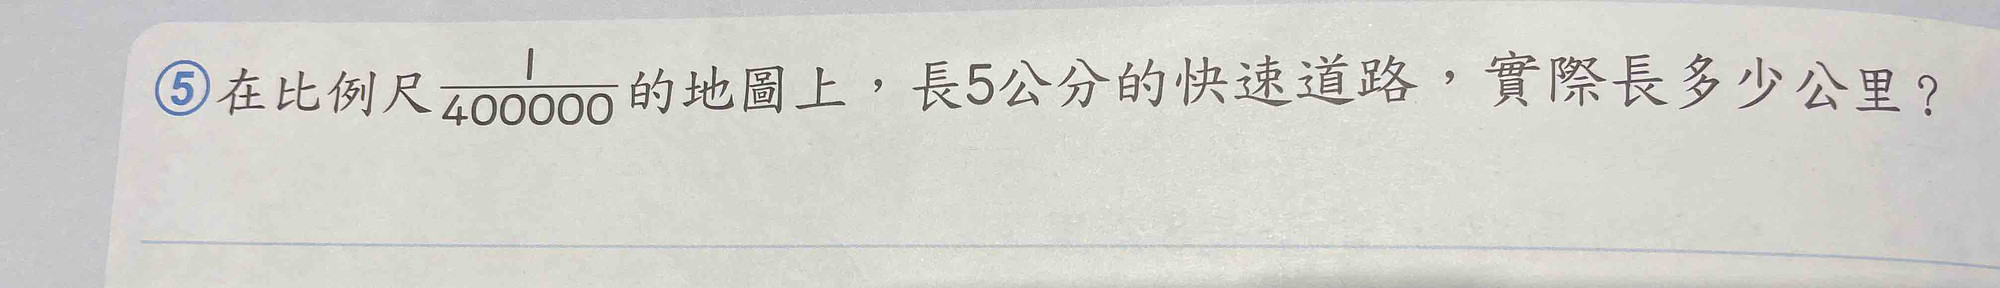 ⑤在比例尺1/400000的地圖上，長5公分的快速道路，實際長多少公里？